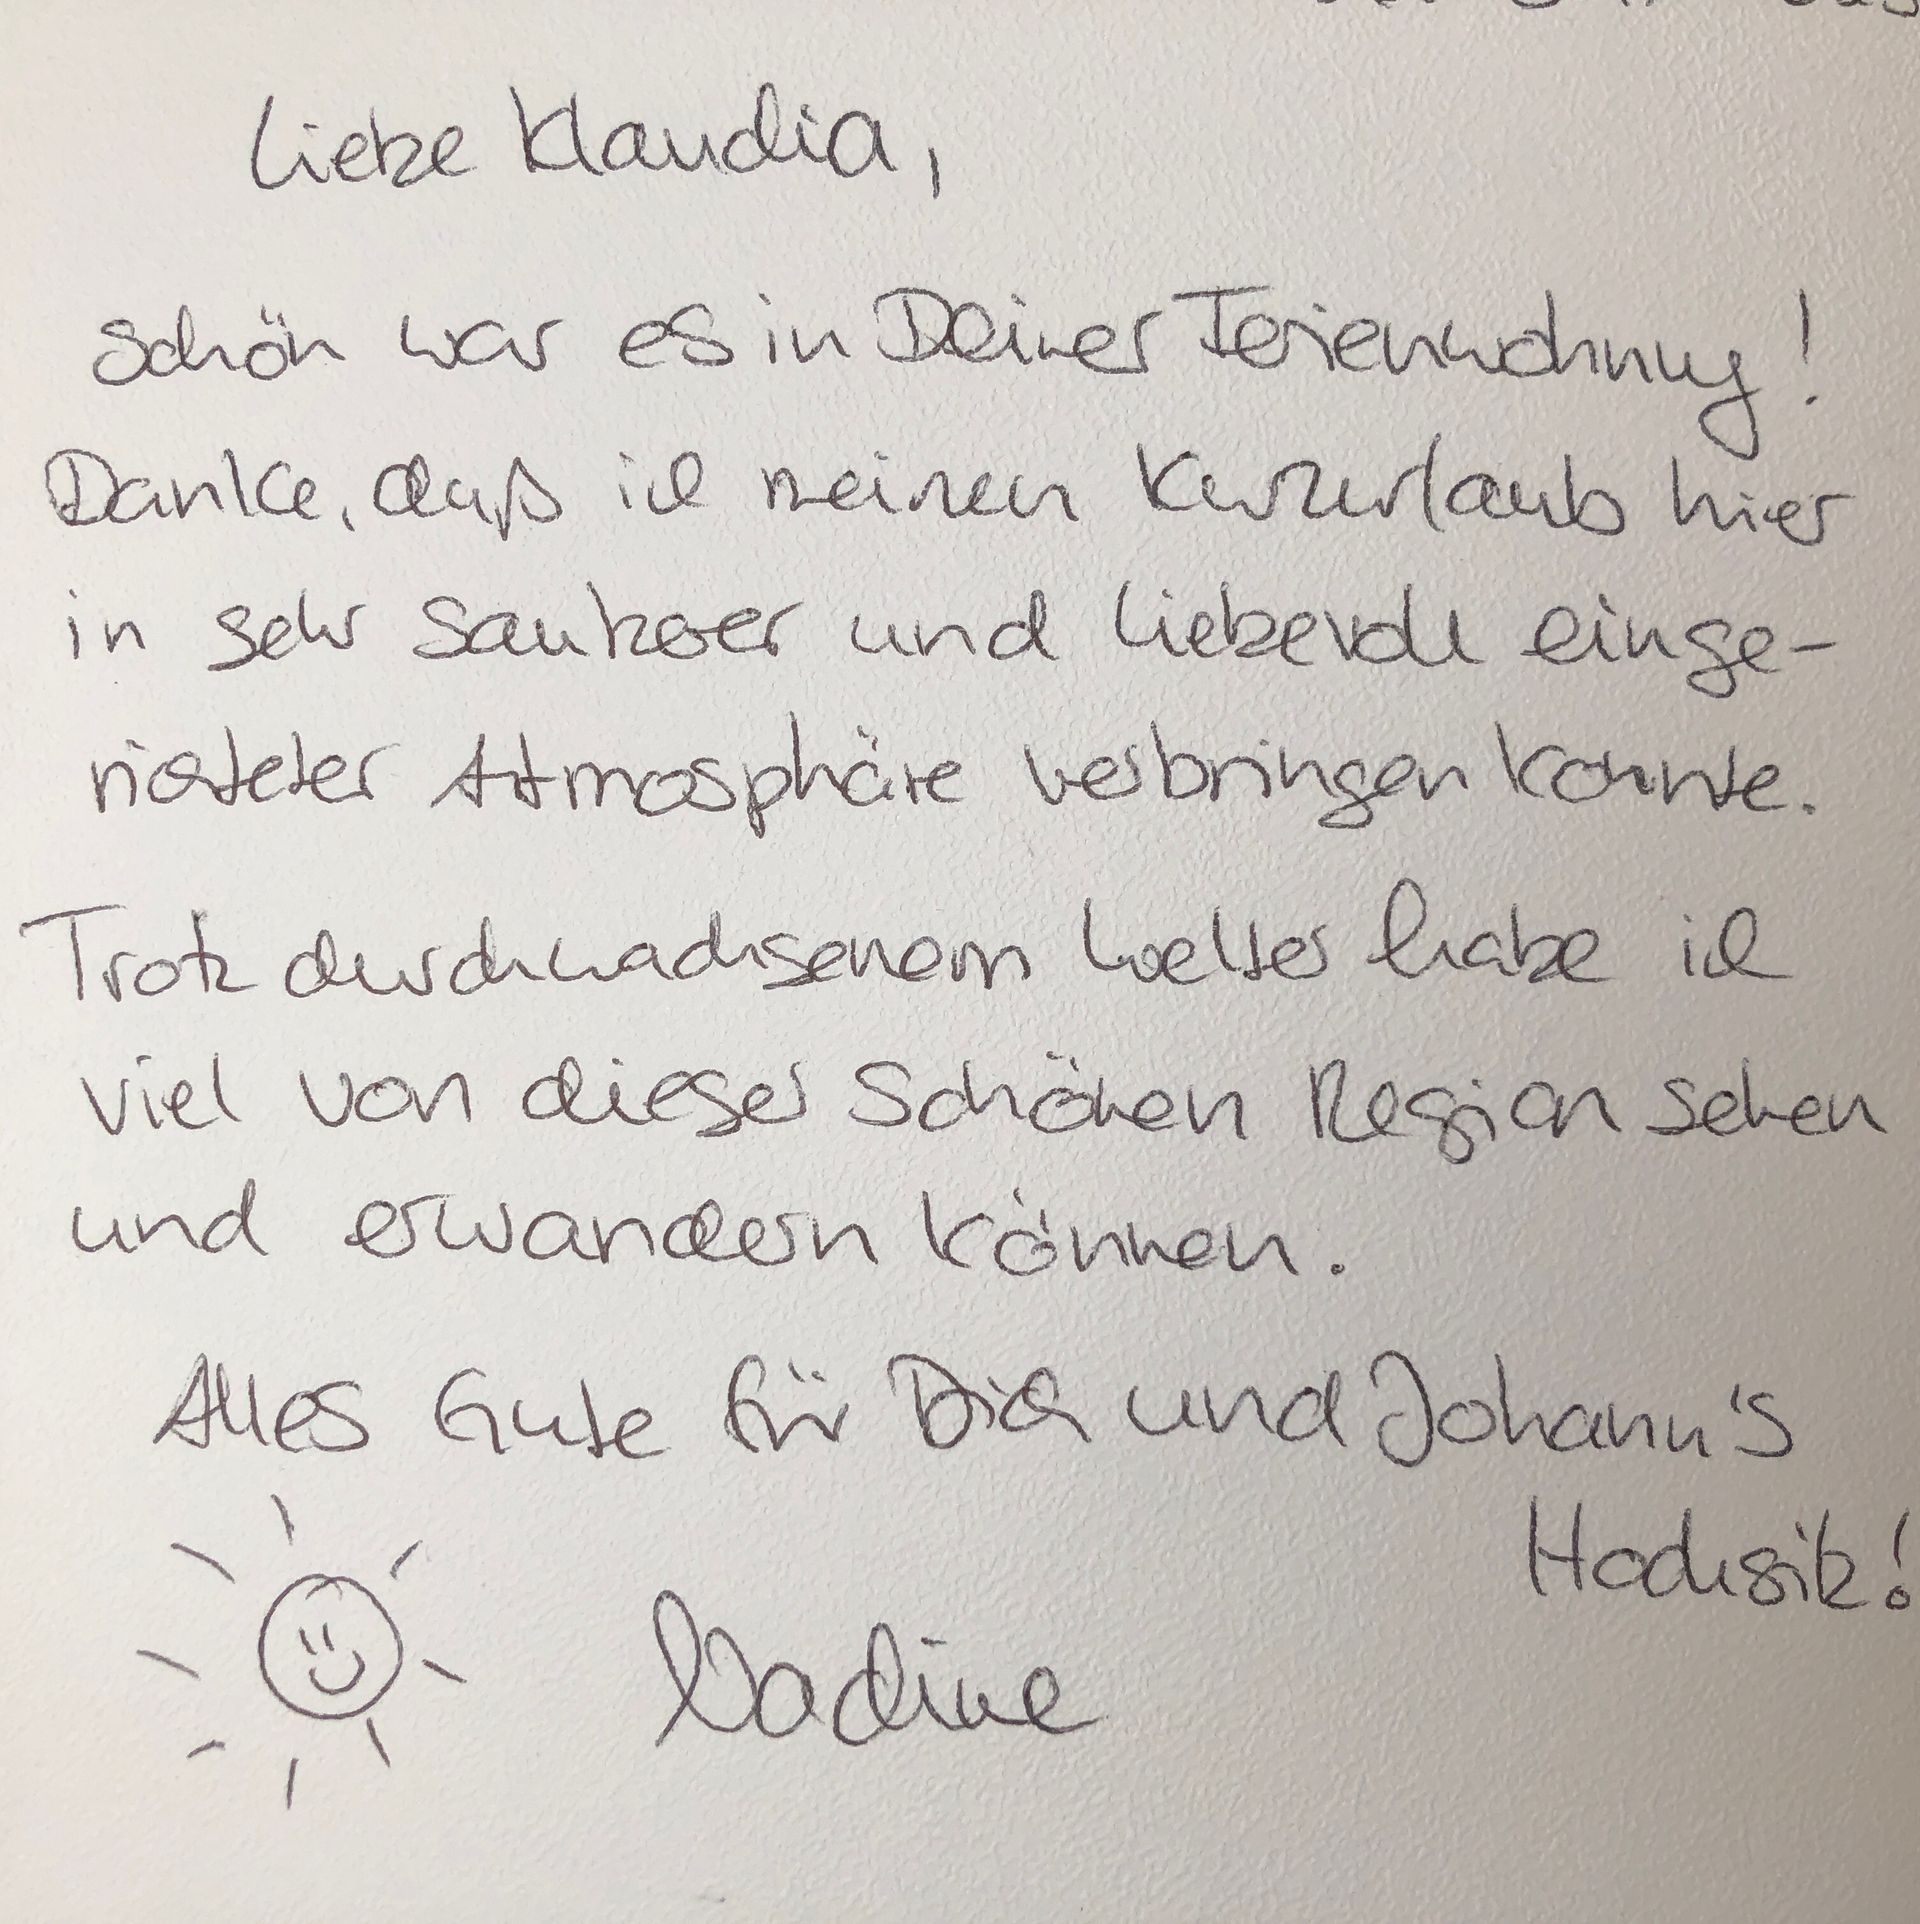 Liebe Klaudia,
schön war es in Deiner Ferienwohnung!
Danke, daß ich meinen Kurzurlaub hier
in sehr sauberer und liebevoll einge-
richteter Atmosphäre verbringen konnte.
Trotz durchwachsenem Wetter habe ich
viel von dieser schönen Region sehen
und erwandern können.
Alles Gute für Dich und Johann's
Hochsitz!
Nadine